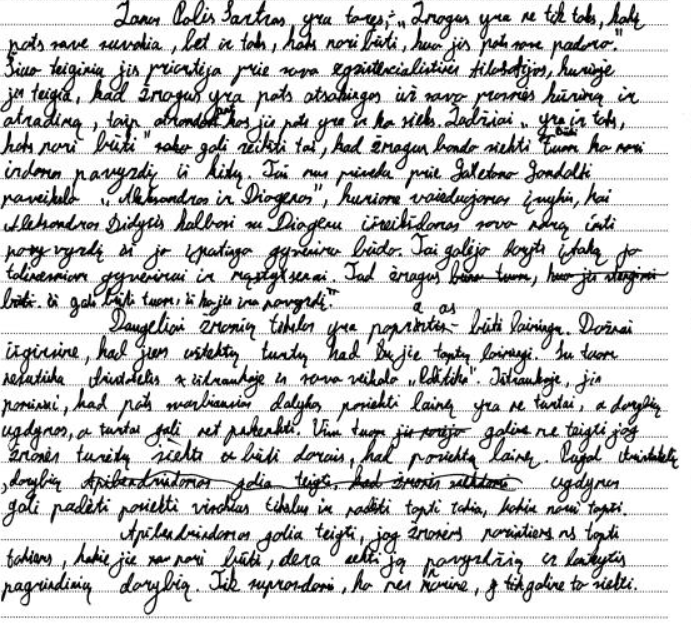 Žanas Polis Sartras yra taręs: „Žmogus yra ne tik toks, kokį
pats save suvokia, bet ir toks, koks nori būti, kuo jis pats save padaro."
Šiuo teiginiu jis priartėja prie savo egzistencialistinės filosofijos, kurioje
jis teigia, kad žmogus yra pats atsakingas už savo prasmės kūrimą ir
atradimą, taip kas jis pats yra ir ko sieks. Žodžiai „yra ir toks,
koks nori būti" gali reikšti tai, kad žmogus bando siekti būti tuom ko nori
imdamas pavyzdį iš kitų. Tai mus priveda prie Gaetano Gandolfi
paveikslo „Aleksandras ir Diogenas", kuriame vaizduojamas įvykis, kai
Aleksandras Didysis kalbasi su Diogenu išreikšdamas savo norą imti
pavyzdį iš jo ypatingo gyvenimo būdo. Tai galėjo daryti įtaką jo
tolimesniam gyvenimui ir mąstymui. Tad žmogus
gali būti tuom, iš ko jis ima pavyzdį"
Daugeliui žmonių tikslas yra paprastas - būti laimingu. Dažnai
išgirsime, kad jiem užtektų turtų kad būtų laimingi. Su tuom
nesutinka Aristotelis ištraukoje iš savo veikalo „Politika". Ištraukoje, jis
paminėi, kad pats svarbiausias dalykas pasiekti laimę yra ne turtai, o dorybių
ugdymas, o turtai gali net pakenkti. Vien tuom galime teigti jog
žmonės turėtų siekti būti dorais, kad pasiektų laimę. Pagal Aristotelį
, dorybių ugdymas
gali padėti pasiekti visokius tikslus ir padėti tapti tokiu, kokiu nori tapti.
Apibendrindamas galiu teigti, jog žmonėms norintiems tapti
tokiems, kokie jie nori būti, dera sekti jų pavyzdžių ir laikytis
pagrindinių dorybių. Tik suprasdami, ko mes norime, tik galime to siekti.